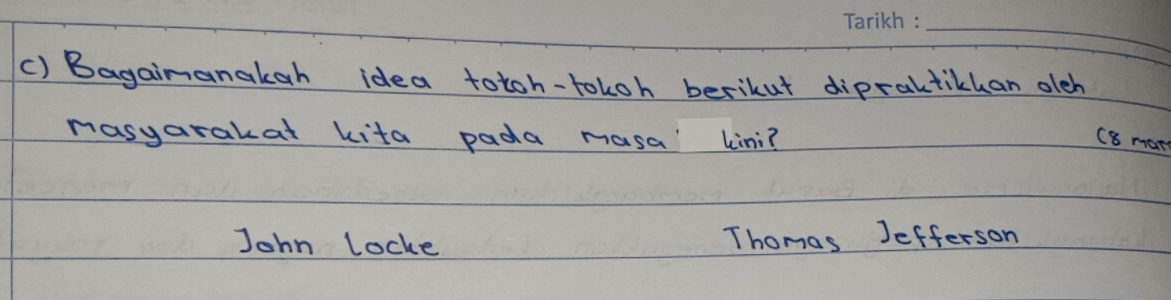 Tarikh :
c) Bagaimanakah idea tokoh-tokoh berikut dipraktikkan oleh
masyarakat kita pada masa kini?
(8 mar
John Locke
Thomas Jefferson